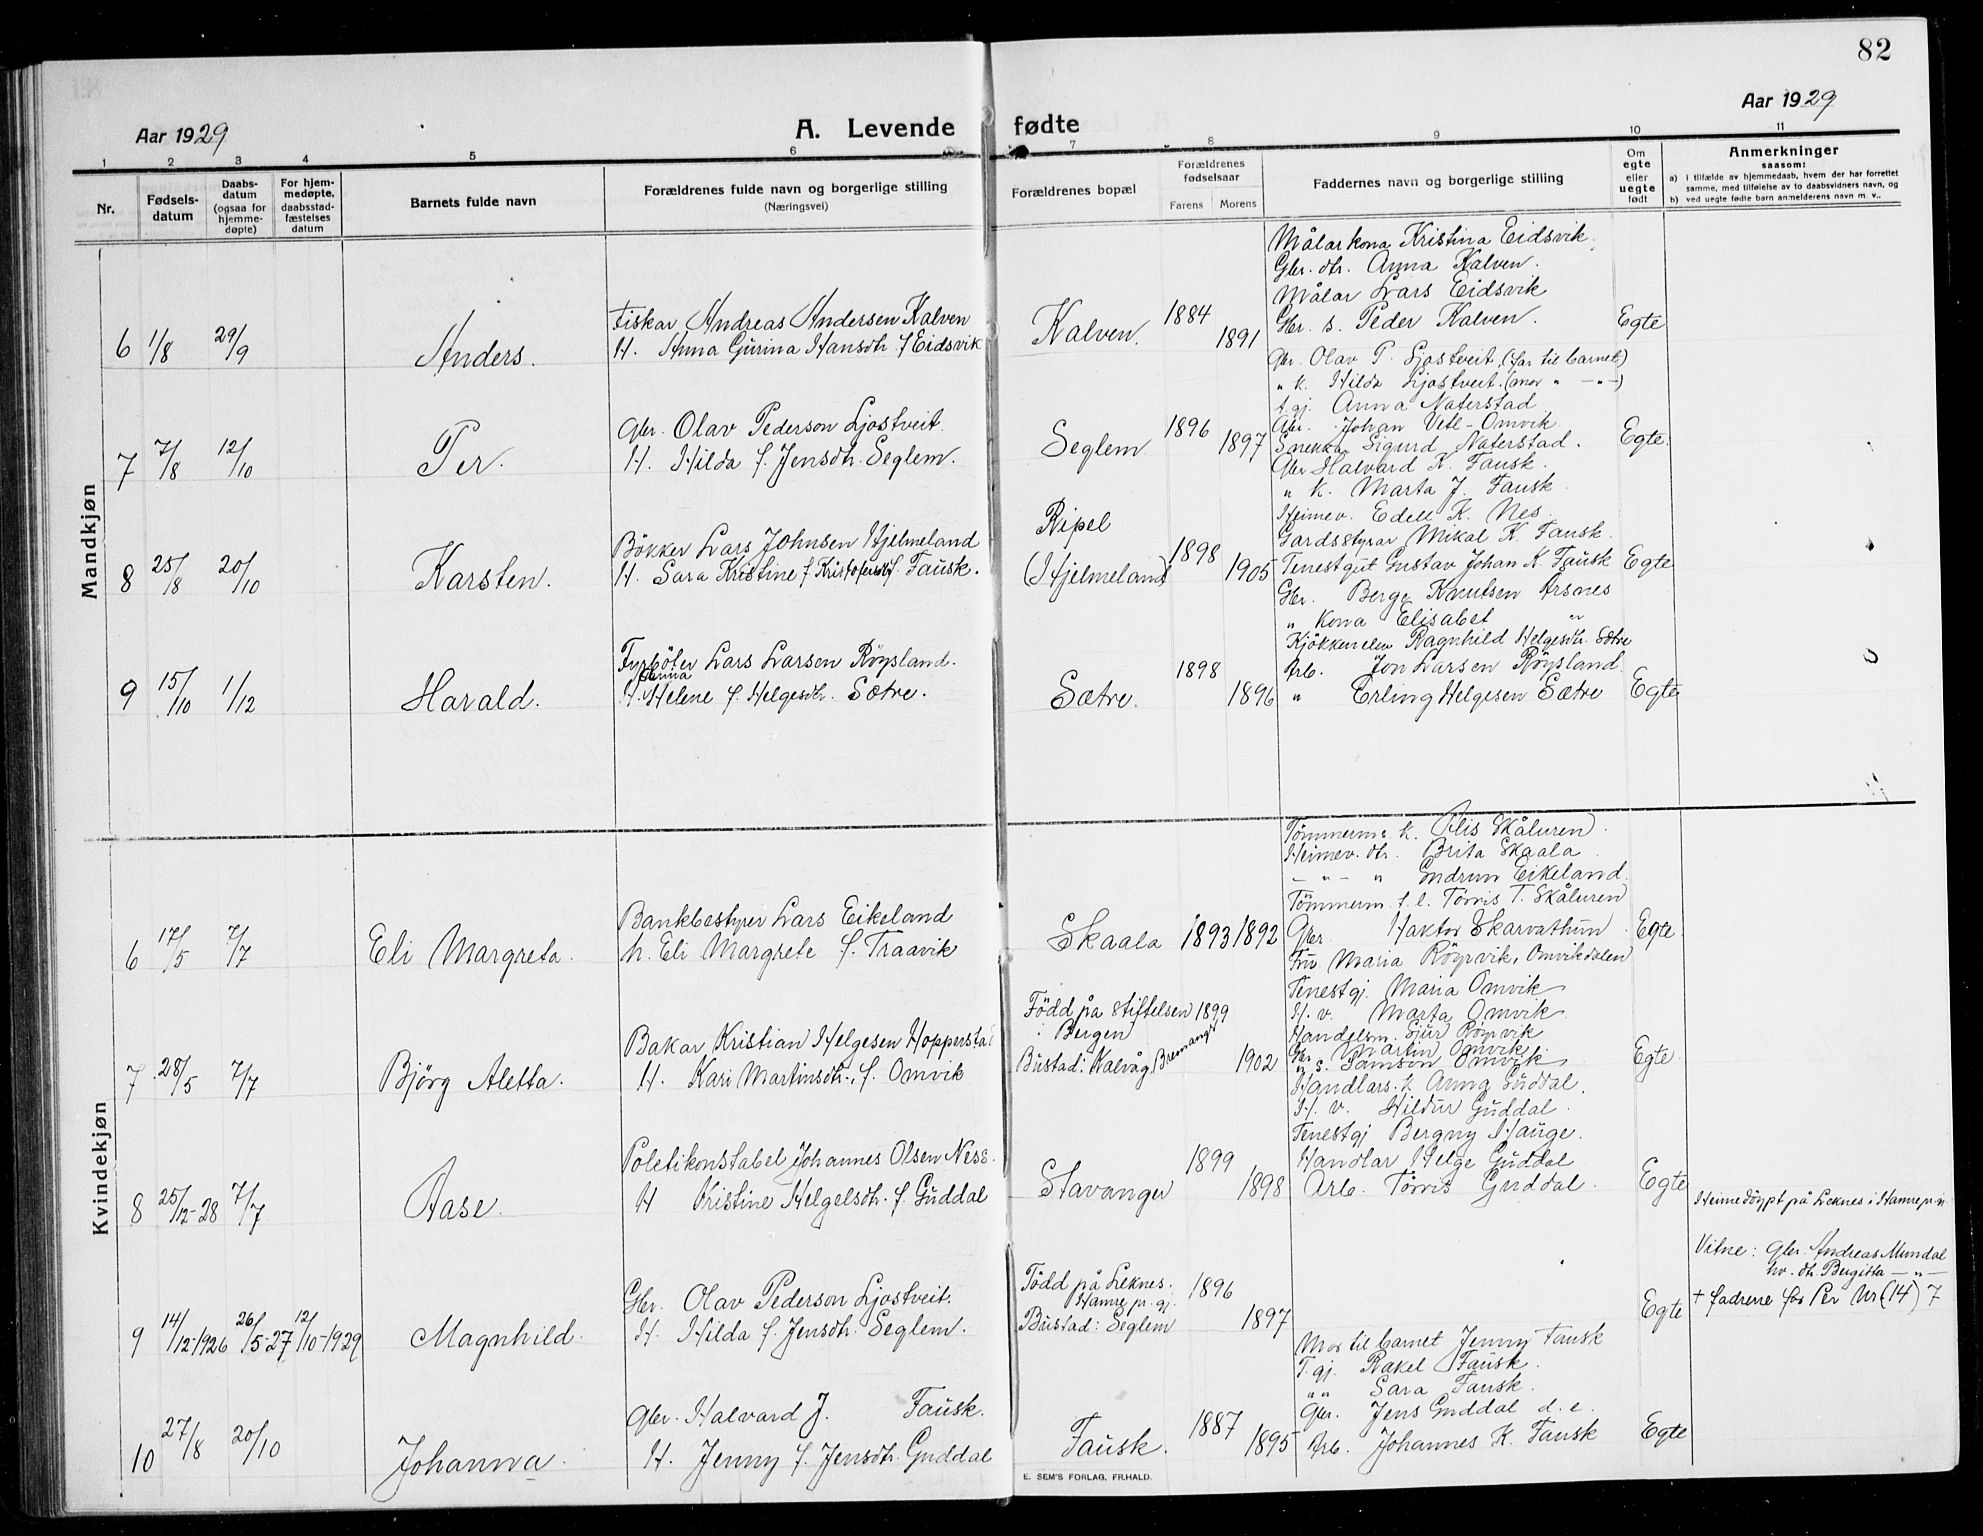 82
Aar 1929
A. Levende fødte
Aar 1929
1 2 3 4 5 6 7 8 9 10 11
Nr.
Fødsels-
datum
Daabs-
datum
(ogsaa for
hjemme-
døpte)
For hjem-
medøpte,
daabsstad-
fæstelses
datum
Barnets fulde navn
Forældrenes fulde navn og borgerlige stilling
(Næringsvei)
Forældrenes bopæl
Forældrenes
fødselsaar
Farens Morens
Faddernes navn og borgerlige stilling
Om
egte
eller
uegte
født
Anmerkninger
saasom:
a) i tilfælde av hjemmedaab, hvem der har forrettet
samme, med tilføielse av to daabsvidners navn, og
b) ved uegte fødte barn anmelderens navn m. v..
Mandkjøn
6 1/8 29/9 Anders.
Fiskar Andreas Andersen Kalven
H. Anna Gurina Hansdtr. f Eidsvik
Kalven. 1884 1891
Målarkona Kristina Eidsvik.
Gbr. dtr. Anna Kalven.
Målar Lars Eidsvik
Gbr. s. Peder Kalven.
Egte
7 7/8 12/10 Per.
Gbr. Olav Pederson Ljostveit.
H. Hilda f. Jensdtr. Seglem.
Seglem 1896 1897
Gbr. Olav P. Ljostveit, (far til barnet)
" k. Hilda Ljostveit. (mor " - " -)
t.gj. Anna Naterstad
Gbr. Johan Vetl-Omvik
Snekkar Sigurd Naterstad.
Egte.
8 25/8 20/10 Karsten.
Bökker Lars Johnsen Hjelmeland
H. Sara Kristine f Kristofersdtr. Fausk.
Ripel
(Hjelmeland) 1898 1905
Gbr Halvard K. Fausk.
" k. Marta J. Fausk.
Heimev. Edell K. Nes.
Gardsstyrar Mikal K. Fausk.
Tenestgut Gustav Johan K. Fausk
Egte
9 15/10 1/12 Harald.
Fyrböter Lars Larsen Röysland.
Hanna
H. Helene f. Helgesdtr. Sætre.
Sætre. 1898 1896
Gbr. Berge Knutsen Arsnes
" Kona Elisabet "
Kjökkenelev Ragnhild Helgesdtr. Sætre
Arb. Jon Larsen Röysland
" Erling Helgesen Sætre
Egte
Kvindekjøn
6 17/5 7/7 Eli Margreta.
Bankbestyrer Lars Eikeland
h. Eli Margrete f. Traavik
Skaala 1893 1892
Tömmerms k. Alis Skåluren.
Heimev. dtr. Brita Skaala
- " - " Gudrun Eikeland.
Tömmerm. f. l. Törris T. Skåluren
Gbr. Haktor Skarvathun
Egte
7 28/5 7/7 Björg Aletta.
Bakar Kristian Helgesen Hopperstad
H. Kari Martinsdtr., f. Omvik
Född på Stiftelsen 1899
i Bergen
Bustad: Kalvåg, Bremanger 1902
Fru Maria Röyrvik, Omvikdalen
Tenestgj. Maria Omvik
H. v. Marta Omvik
Handelsm. Sjur Röyrvik
Gbr. Martin Omvik
" s. Samson Omvik
Egte.
8 25/12-28 7/7 Aase.
Politikonstabel Johannes Olsen Ness.
H Kristine Helgesdtr. f. Guddal
Stavanger 1899 1898
Handlars. k Anna Guddal.
H. v. Hildur Guddal.
Tenestgj Bergny Hauge.
Handlar Helge Guddal
Arb. Törris Guddal.
Egte
9 14/12-1926 26/5-27 12/10-1929 Magnhild.
Gbr. Olav Pederson Ljostveit.
H. Hilda f. Jensdtr. Seglem.
Född på Leknes.
Hamre p. gj.
Bustad: Seglem 1896 1897
Egte
Heimedöypt på Leknes i Hamre p.
Vitne: Gbr. Andreas Mundal
hv. dtr. Bergitta - " -
+ fadrene for Per Nr (14) 7
10 27/8 20/10 Johanna.
Gbr. Halvard J. Fausk.
H. Jenny f. Jensdtr. Guddal
Fausk. 1887 1895
Mor til barnet Jenny Fausk
T. gj. Rakel Fausk.
" " Sara Fausk.
Gbr. Jens Guddal d. e.
Arb. Johannes K. Fausk
Egte
E. SEM'S FORLAG, FR.HALD.